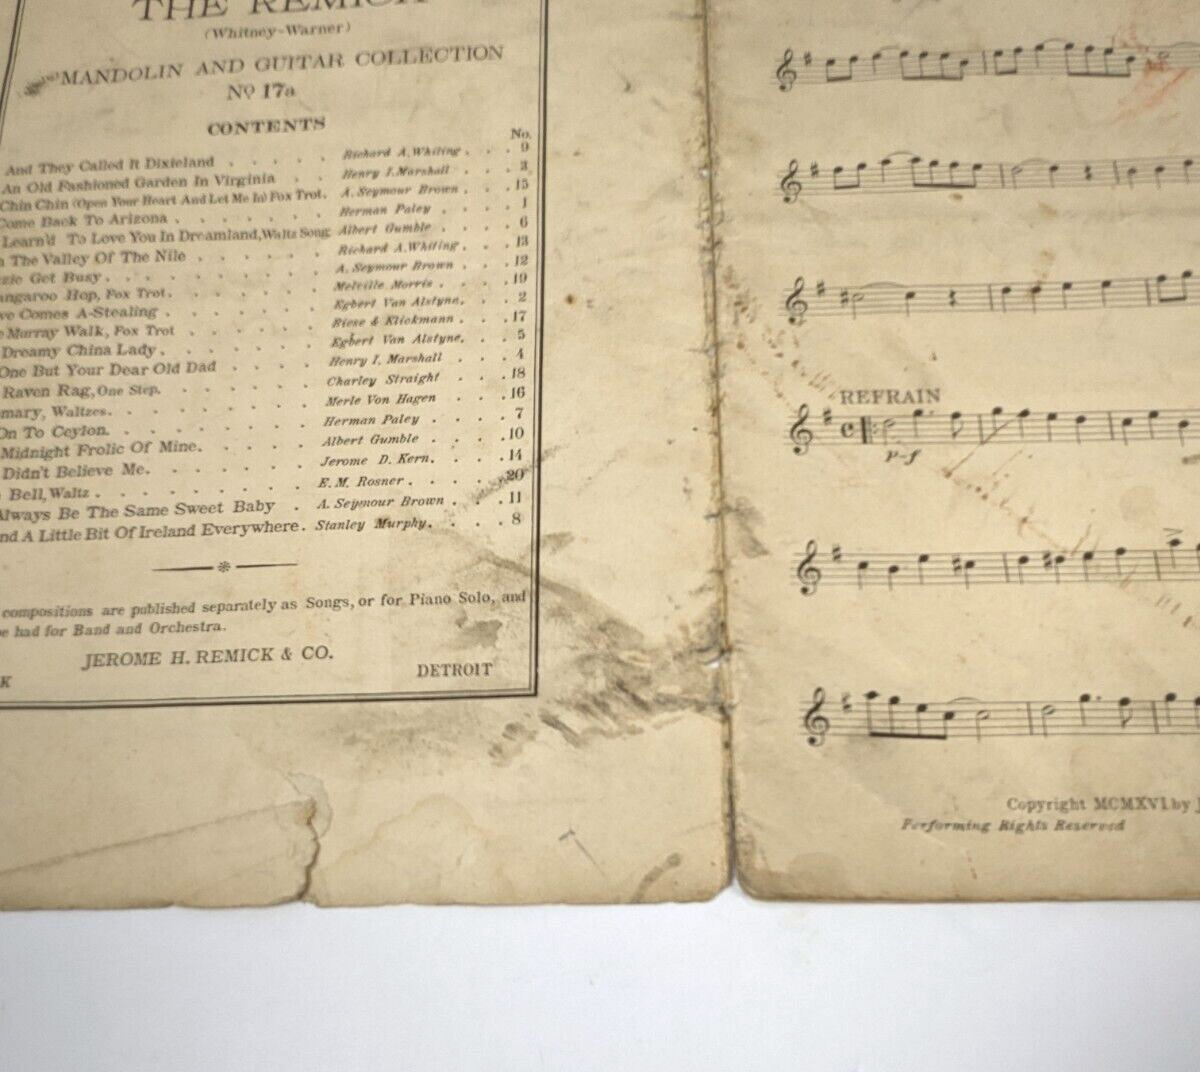 THE REMICK
(Whitney-Warner)
MANDOLIN AND GUITAR COLLECTION
No 17a
CONTENTS
No.
And They Called It Dixieland . . . . . Richard A. Whiting . . . 9
An Old Fashioned Garden In Virginia . . Henry I. Marshall . . . 3
Chin Chin (Open Your Heart And Let Me In) Fox Trot. A. Seymour Brown . . . 15
Come Back To Arizona . . . . . . Herman Paley . . . . 1
Learn'd To Love You In Dreamland, Waltz Song Albert Gumble . . . . 6
The Valley Of The Nile . . . . . Richard A. Whiting . . . 13
Get Busy . . . . . . . . A. Seymour Brown . . . 12
Hop, Fox Trot. . . . . . . Melville Morris . . . . 19
Comes A-Stealing . . . . . . Egbert Van Alstyne. . . 2
Murray Walk, Fox Trot . . . . . Riese & Klickmann . . . 17
Dreamy China Lady . . . . . . Egbert Van Alstyne. . . 5
One But Your Dear Old Dad . . . . Henry I. Marshall . . . 4
Raven Rag, One Step. . . . . . . Charley Straight . . . 18
mary, Waltzes. . . . . . . . Merle Von Hagen . . . 16
On To Ceylon. . . . . . . . Herman Paley . . . . 7
Midnight Frolic Of Mine. . . . . Albert Gumble . . . . 10
Didn't Believe Me. . . . . . . Jerome D. Kern. . . . 14
Bell, Waltz . . . . . . . . E. M. Rosner . . . . 20
Always Be The Same Sweet Baby . A. Seymour Brown . . . 11
nd A Little Bit Of Ireland Everywhere. Stanley Murphy. . . . 8
compositions are published separately as Songs, or for Piano Solo, and
e had for Band and Orchestra.
JEROME H. REMICK & CO.
K DETROIT
REFRAIN
p-f
Copyright MCMXVI by J
Performing Rights Reserved